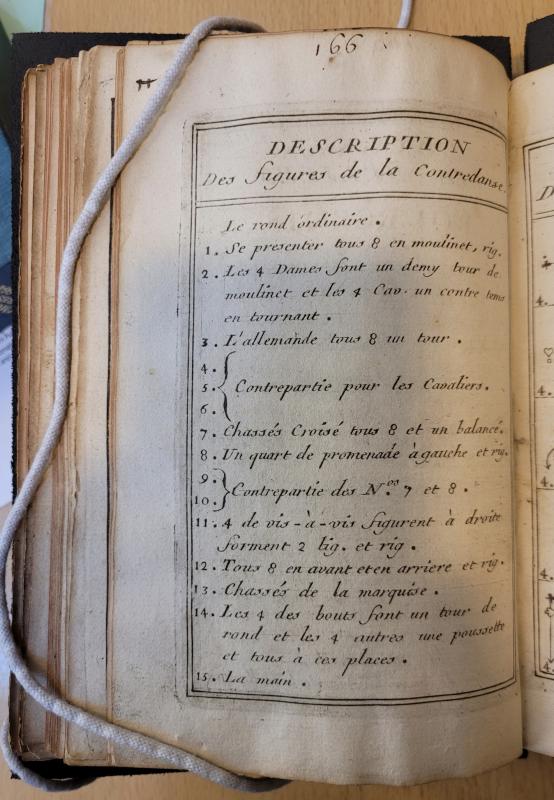 166
DESCRIPTION
Des figures de la Contredanse.
Le rond ordinaire.
1. Se presenter tous 8 en moulinet, rig.
2. Les 4 Dames font un demy tour de
moulinet et les 4 Cav. un contre tems
en tournant.
3. L'allemande tous 8 un tour.
4.
5. Contrepartie pour les Cavaliers.
6.
7. Chassés Croisé tous 8 et un balancé.
8. Un quart de promenade à gauche et rig.
9.
10. Contrepartie des N.os 7 et 8.
11. 4 de vis-à-vis figurent à droite
forment 2 lig. et rig.
12. Tous 8 en avant et en arriere et rig.
13. Chassés de la marquise.
14. Les 4 des bouts font un tour de
rond et les 4 autres une poussette
et tous à ces places.
15. La main.
D
4.
4.
4.
4.
4.